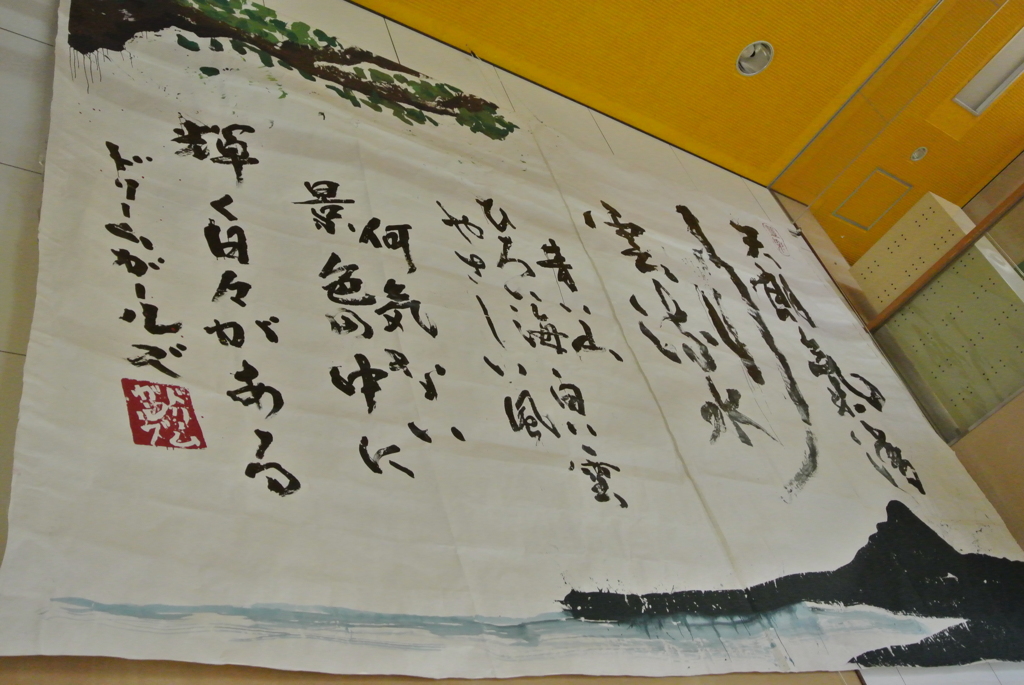 天朗氣清
行雲流水
青い山白い雲
ひろい海
やさしい風
何気ない
景色の中に
輝く日々がある
ドリームガールズ
ドリーム
ガールズ